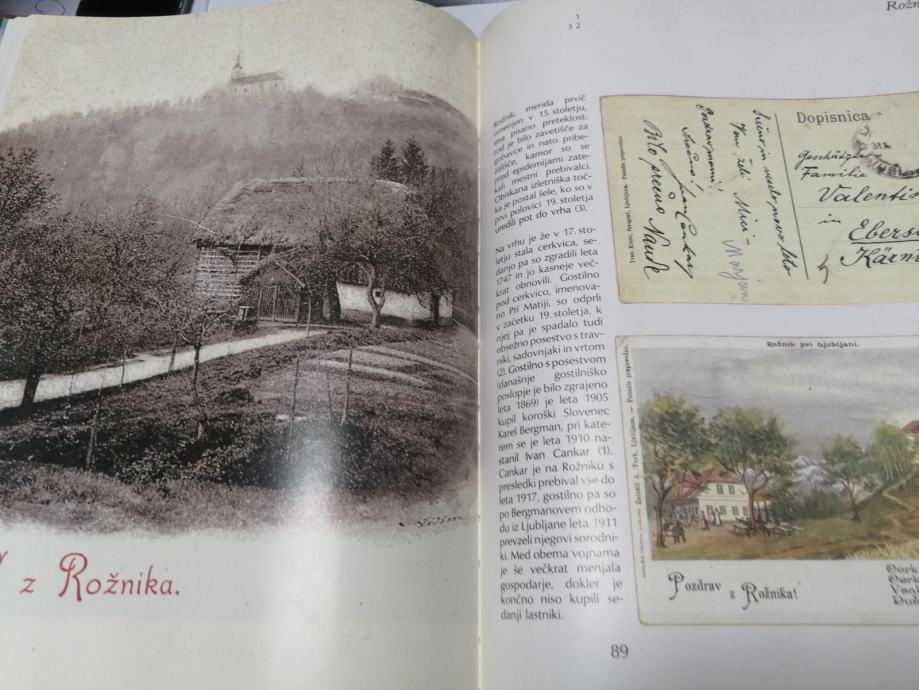 z Rožnika.
1
3 2
Rožnik, menda prvič
omenjen v 15. stoletju,
ima pisano preteklost:
tod je bilo zavetišče za
gobavce in nato pribe-
žališče, kamor so se
pred epidemijami zate-
kali mestni prebivalci.
Obiskana izletniška toč-
ka je postal šele, ko so v
prvi polovici 19. stoletja
uredili pot do vrha (3).
Na vrhu je že v 17. sto-
letju stala cerkvica, se-
danjo pa so zgradili leta
1747 in jo kasneje več-
krat obnovili. Gostilno
pod cerkvico, imenova-
no Pri Matiji, so odprli
v začetku 19. stoletja, k
njej pa je spadalo tudi
obsežno posestvo s trav-
niki, sadovnjaki in vrtom
(2). Gostilno s posestvom
(današnje gostilniško
poslopje je bilo zgrajeno
leta 1869) je leta 1905
kupil koroški Slovenec
Karel Bergman, pri kate-
rem se je leta 1910 na-
stanil Ivan Cankar (1).
Cankar je na Rožniku s
presledki prebival vse do
leta 1917, gostilno pa so
po Bergmanovem odho-
du iz Ljubljane leta 1911
prevzeli njegovi sorodni-
ki. Med obema vojnama
je še večkrat menjala
gospodarje, dokler je
končno niso kupili se-
danji lastniki.
89
Rožn
Dopisnica
Geschätzte
Familie
Valentin
in
Ebers
Kärn
Rožnik pri Ljubljani.
Založil J. Turk, Ljubljana. — Ponatis prepovedan.
Pozdrav
z Rožnika!